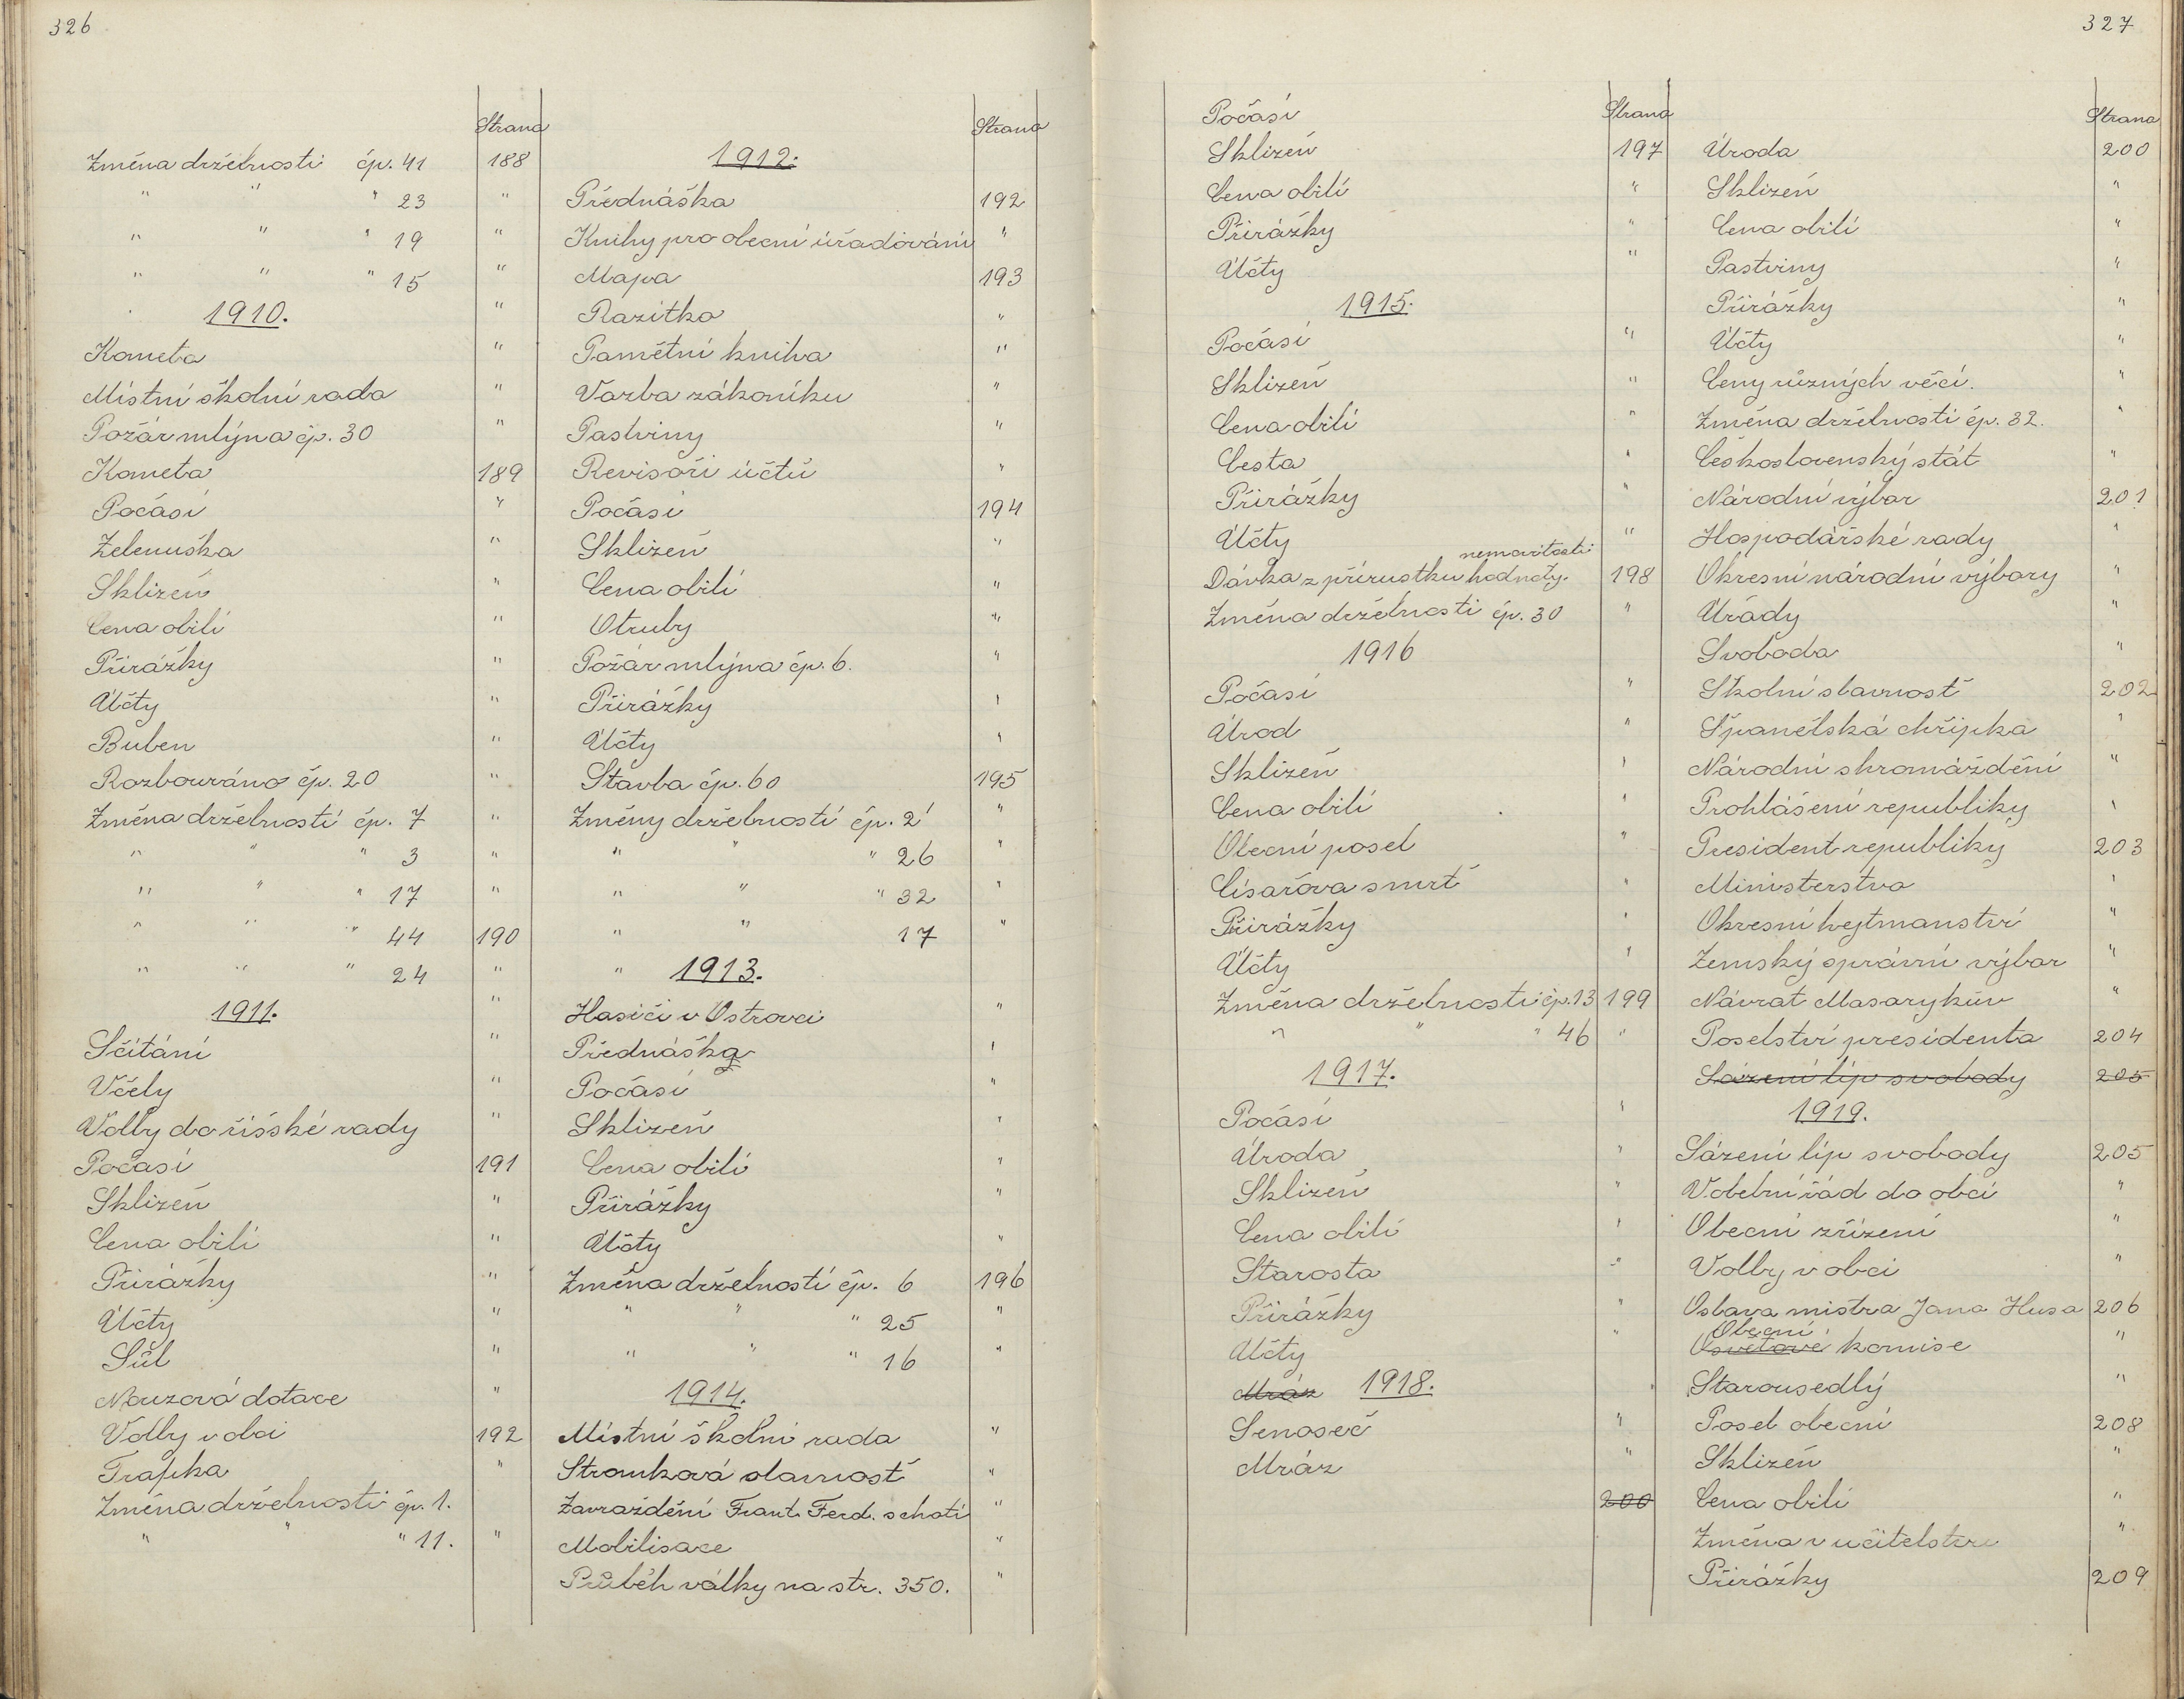 326
Strana
Změna držebnosti čp. 41 188
" " " 23 "
" " " 19 "
" " " 15 "
1910. "
Kometa "
Místní školní rada "
Požár mlýna čp. 30 "
Kometa 189
Počasí "
Zelenuška "
Sklizeň "
Cena obilí "
Přirážky "
Účty "
Buben "
Rozbouráno čp. 20 "
Změna držebností čp. 7 "
" " " 3 "
" " " 17 "
" " " 44 190
" " " 24 "
1911. "
Sčítání "
Včely "
Volby do říšské rady "
Počasí 191
Sklizeň "
Cena obilí "
Přirážky "
Účty "
Sůl "
Nouzová dotace "
Volby v obci 192
Trafika "
Změna držebnosti čp. 1.
" " " 11. "
Strana
1912.
Přednáška 192
Knihy pro obecní úřadování "
Mapa 193
Razítko "
Pamětní kniha "
Vazba zákoníku "
Pastviny "
Revisoři účtů "
Počasí 194
Sklizeň "
Cena obilí "
Otruby "
Požár mlýna čp. 6. "
Přirážky "
Účty "
Stavba čp. 60 195
Změny držebností čp. 2 "
" " " 26 "
" " " 32 "
" " 17 "
" 1913.
Hasiči v Ostrovci "
Přednáška "
Počasí "
Sklizeň "
Cena obilí "
Přirážky "
Účty "
Změna držebností čp. 6 196
" " " 25 "
" " " 16 "
1914.
Místní školní rada "
Stromková slavnost "
Zavraždění Frant. Ferd. s chotí "
Mobilisace "
Průběh války na str. 350. "
327
Strana
Počasí
Sklizeň 197
Cena obilí "
Přirážky "
Účty "
1915.
Počasí "
Sklizeň "
Cena obilí "
Cesta "
Přirážky "
Účty "
nemovitosti
Dávka z přírustku hodnoty. 198
Změna držebnosti čp. 30 "
1916
Počasí "
Úrod "
Sklizeň "
Cena obilí "
Obecní posel "
Císařova smrt "
Přirážky "
Účty "
Změna držebnosti čp. 13 199
" " " 46 "
1917.
Počasí "
Úroda "
Sklizeň "
Cena obilí "
Starosta "
Přirážky "
Účty "
Mráz 1918. "
Senoseč "
Mráz "
200
Strana
Úroda 200
Sklizeň "
Cena obilí "
Pastviny "
Přirážky "
Účty "
Ceny různých věcí. "
Změna držebnosti čp. 32. "
Československý stát "
Národní výbor 201
Hospodářské rady "
Okresní národní výbory "
Úřady "
Svoboda "
Školní slavnost 202
Španělská chřipka "
Národní shromáždění "
Prohlášení republiky "
President republiky 203
Ministerstvo "
Okresní hejtmanství "
Zemský správní výbor "
Návrat Masarykův "
Poselství presidenta 204
Sázení líp svobody 205
1919.
Sázení líp svobody 205
Volební řád do obcí "
Obecní zřízení "
Volby v obci "
Oslava mistra Jana Husa 206
Obecní
Osvětové komise "
Starousedlý "
Posel obecní 208
Sklizeň "
Cena obilí "
Změna v učitelstvu "
Přirážky 209